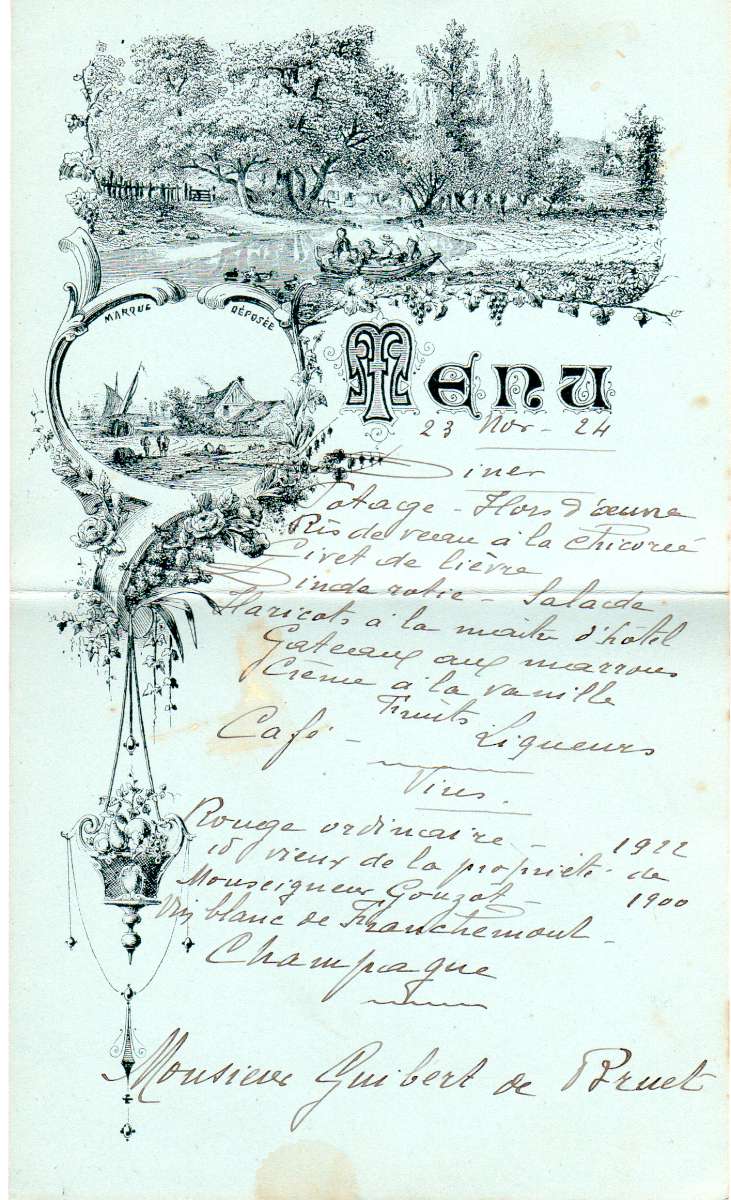 MARQUE DÉPOSÉE
MENU
23 Nov - 24
Diner
Potage - Hors d'œuvre
Ris de veau à la chicorée
Civet de lièvre
Dinde rotie - Salade
Haricots à la maitre d'hôtel
Gateaux aux marrons
Crème à la vanille
Fruits
Café - Liqueurs
Vins.
Rouge ordinaire - 1922
id vieux de la propriété de
Monseigneur Gouzot - 1900
Vin blanc de Franchemont -
Champagne
Monsieur Guibert de Bruet